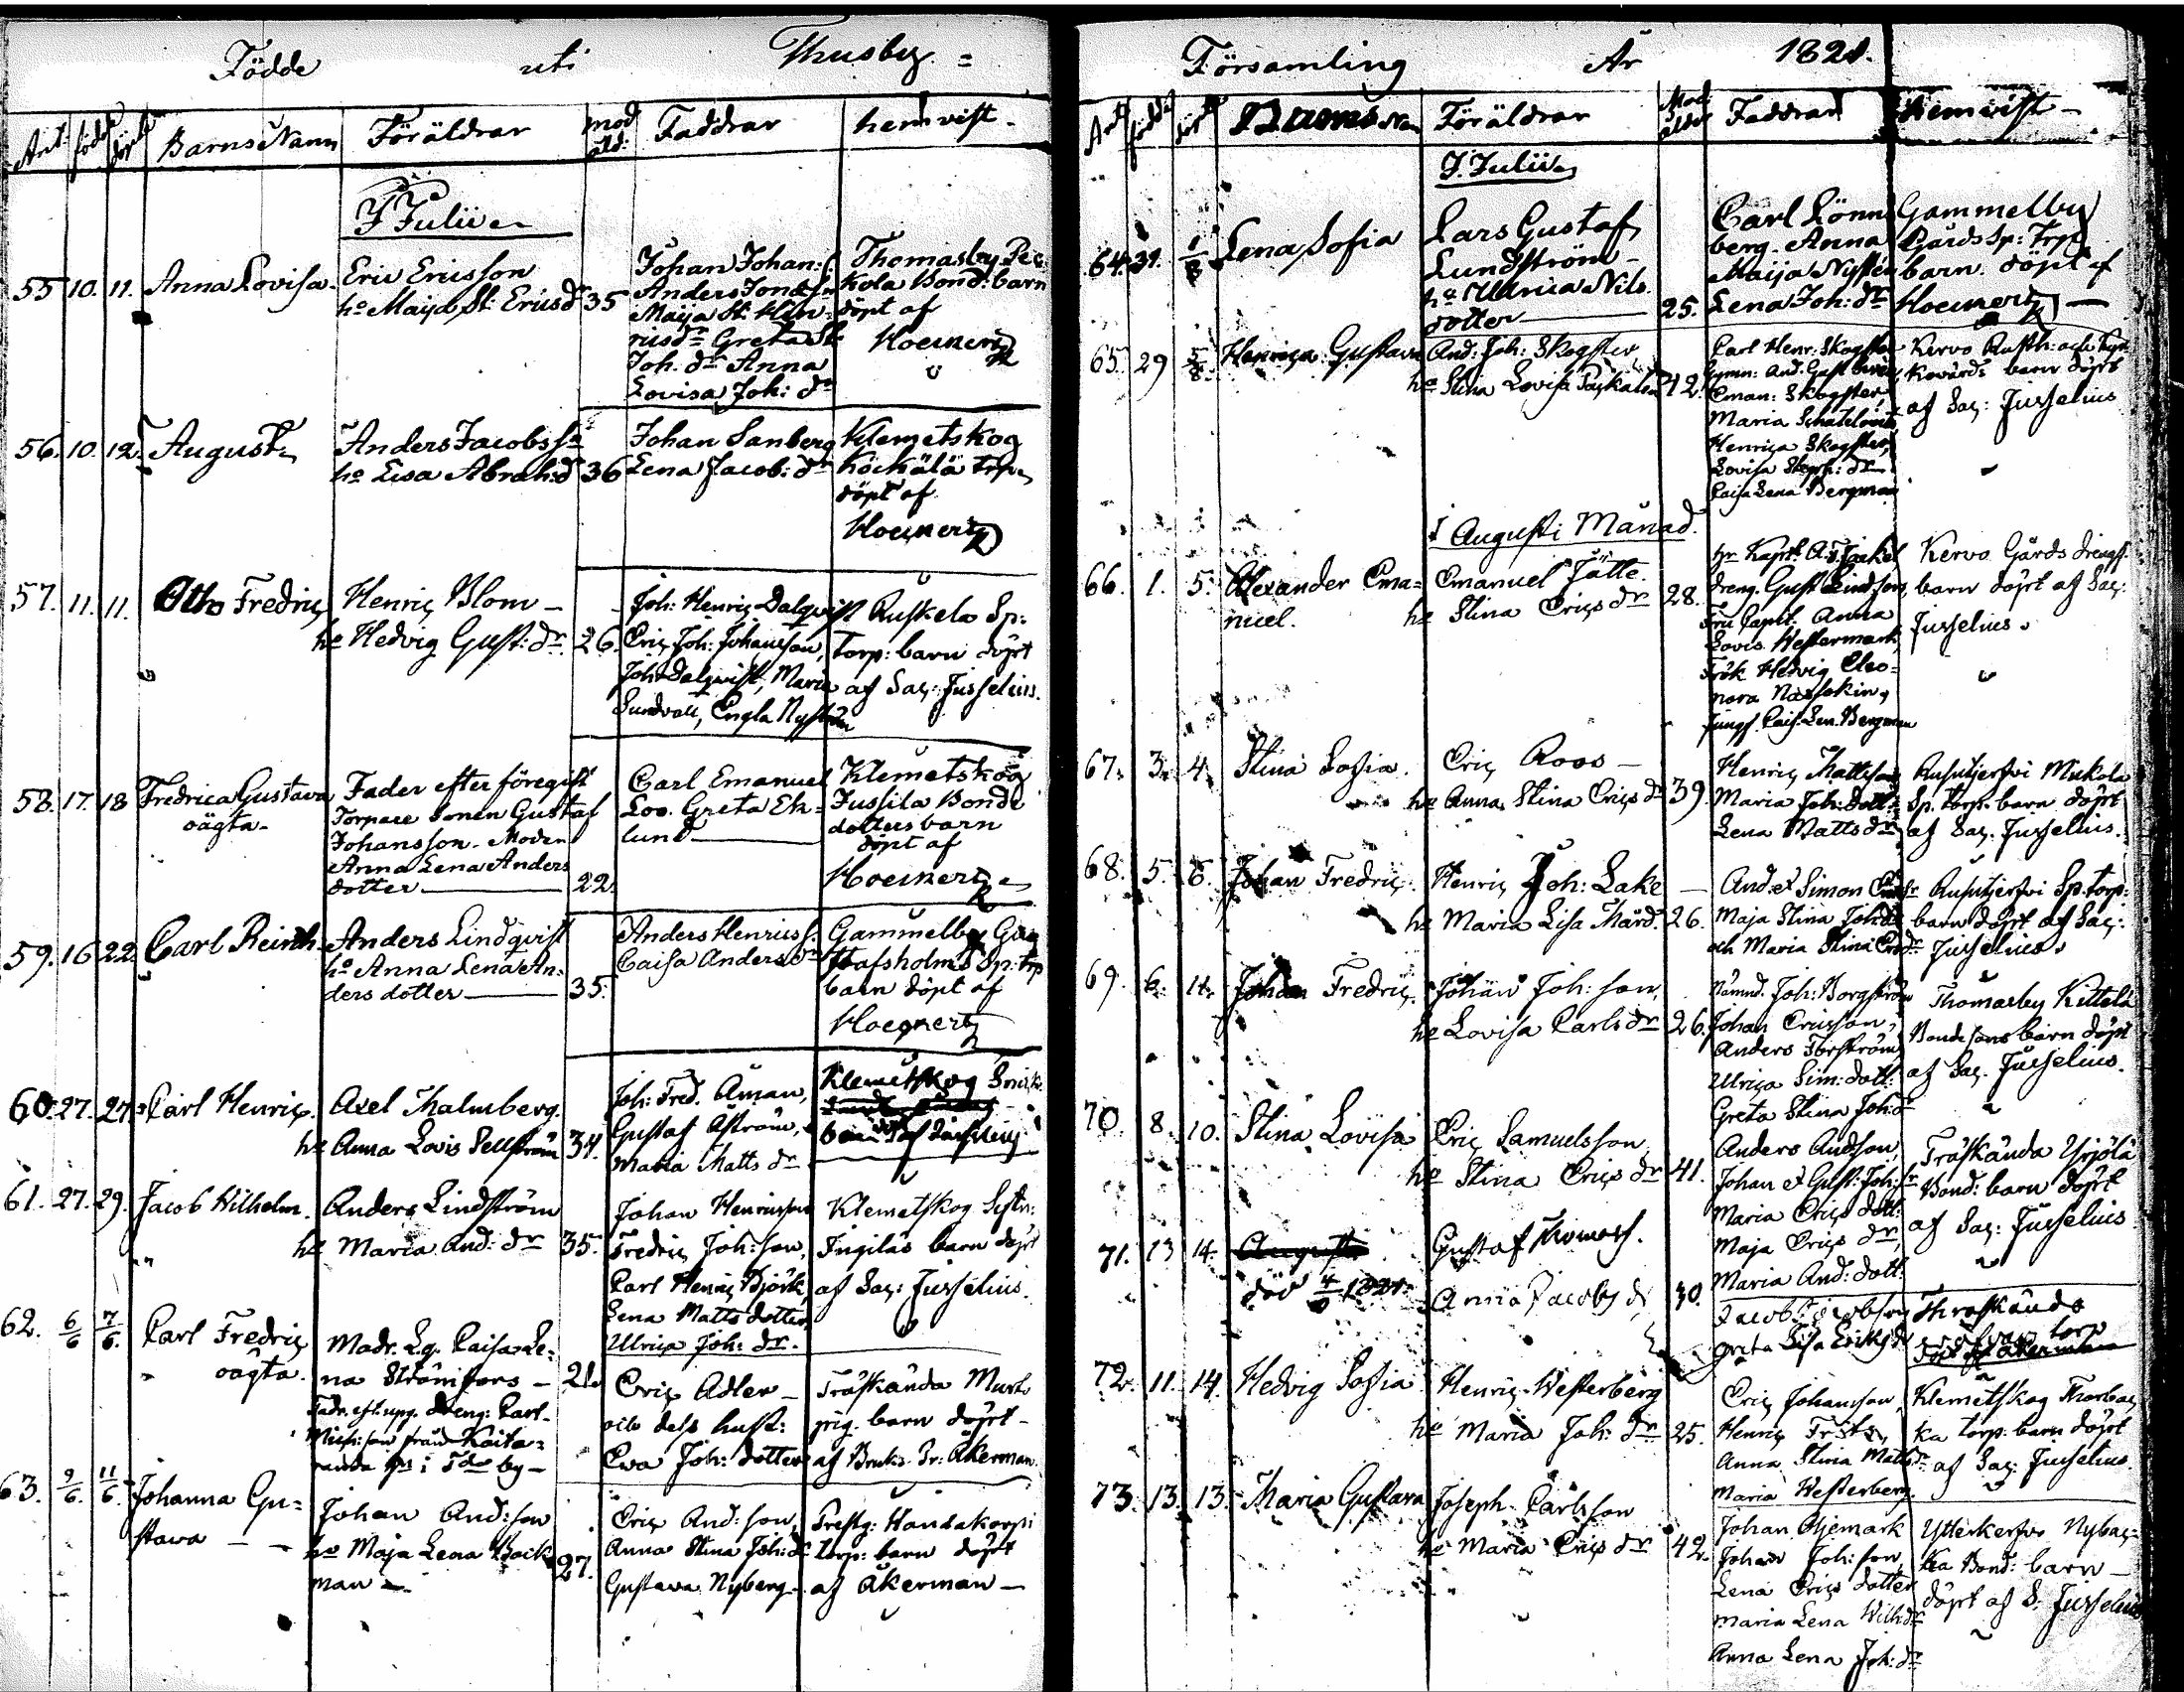 Födde uti Thusby =
Ant: född döpt Barns Namn Föräldrar mod åld: Faddrar hemvist -
I Julii
55 10. 11. Anna Lovisa. Eric Ericsson
hº Maija St: Ericsdr 35
Johan Johan:
Anders Jonass
Maija St. Hen-
ricsdr Greta St
Joh. dr Anna
Lovisa Joh: dr
Thomasby Pec
kola Bond: barn
döpt af
Hoeckert
56. 10. 12. August Anders Jacobsson
hº Lisa Abrah:d 36
Johan Sanberg
Lena Jacob: dr
Klemetskog
Köckälä trp
döpt af
Hoeckert
57. 11. 11. Otto Fredric Henric Blom -
he Hedvig Gust: dr. 26.
Joh: Henric Dalqvist
Eric Joh: Johansson,
Joh Dalqvist, Maria
Sundvall, Engla Nyström
Ruskela Sp:
torp: barn döpt
af Sac: Jusselius.
58. 17. 18 Fredrica Gustava
oägta -
Fader efter föregift
Torpare Sonen Gustaf
Johansson - Modern
Anna Lena Anders
dotter 22.
Carl Emanuel
Loo. Greta Ek=
lund
Klemetskog
Jussila Bonde
dotters barn
döpt af
Hoeckert
59. 16 22 Carl Reinh. Anders Lindqvist
hº Anna Lena An:
ders dotter 35.
Anders Henricss:
Caisa Anders dr
Gammelby Gus
tafsholms Sp: trp
barn döpt af
Hoeckert
60. 27. 27. Carl Henric. Axel Malmberg.
he Anna Lovis Sellström 34.
Joh: Fred. Åman,
Gustaf Åström,
Maria Matts dr
Klemetskog
61. 27. 29. Jacob Wilhelm. Anders Lindström
he Maria And: dr 35.
Johan Henricsson
Fredric Joh: son,
Carl Henric Björk,
Lena Matts dotter,
Ulrica Joh: dr.
Klemetskog
Ingiläs barn döpt
af Sac: Jusselius.
62. 6/6 7/6. Carl Fredric
oägta.
Modr. Lg. Caisa Le-
na Strömfors - 21.
Fadr. eft. upg. dreng: Carl
Eric Adler -
och dess hust:
Eva Joh: dotter
Träskända Mur
pig. barn döpt -
af Bruks Pr: Åkerman.
63. 9/6. 11/6. Johanna Gu=
stava - -
Johan And: son
he Maja Lena Back
man - 27.
Eric And: son
Anna Stina Joh: dr
Gustava Nyberg -
Prestg: Handakorpi
torp: barn döpt
af Åkerman -
Församling År 1821.
Ant: född döpt Barns Nam Föräldrar Mod ålder Faddrar Hemvist -
I. Julii
64. 31. 1/8 Lena Sofia Lars Gustaf
Lundström -
hº Ulrica Nils
dotter 25.
Carl Lönn
berg. Anna
Maija Nyssén
Lena Joh: dr
Gammelby
Gårds Sp: Trp
barn. döpt af
Hoeckert
65. 29 5/8. Henrica Gustava And: Joh: Skogster
he Stina Lovisa Paskalen 42.
Carl Henr. Skogster
Eman: Skogster,
Maria
Henrica Skogster,
Lovisa Steph: dr
Caisa Lena Bergman
Kervo Rusth:
barn döpt
af Sac: Jusselius
I Augusti Månad.
66. 1. 5. Alexander Ema=
nuel.
Emanuel Jätte.
he Stina Erics dr 28.
hr Kapt.
dreng. Gust Lindfors,
Fru Capit. Anna
Lovis. Westermark
Frök Hedvig Eleo-
nora Nassokin,
Jungf. Cais. Len. Bergman
Kervo Gårds drengs
barn döpt af Sac:
Jusselius.
67. 3. 4. Stina Sofia. Eric Roos -
he Anna Stina Erics dr 39.
Henric Mattsson
Maria Joh: dott:
Lena Matts dr
Rusutjerfvi Mickola
Sp. torp. barn döpt
af Sac. Jusselius.
68. 5. 6. Johan Fredric. Henric Joh: Lake -
he Maria Lisa Mård. 26.
And. et Simon
Maja Stina Joh: dr
och Maria Stina
Rusutjerfvi Sp. torp:
barn döpt af Sac:
Jusselius.
69. 6. 11. Johan Fredric. Johan Joh: son,
he Lovisa Carls dr 26.
Nämnd. Joh: Borgström
Johan Ericsson,
Anders Forsström
Ulrica Sim: dott:
Greta Stina Joh: dr
Thomasby Kittelä
Bondesons barn döpt
af Sac. Jusselius.
70. 8. 10. Stina Lovisa Eric Samuelsson
he Stina Erics dr 41.
Anders Andsson,
Johan et Gust: Joh:
Maria Erics dott:
Maja Erics dr,
Maria And: dott.
Träskända Yrjölä
Bond: barn döpt
af Sac: Jusselius
71. 13 14. Augusta
död 1821.
Gustaf Thomass.
Anna Jacobs dr 30.
Jacob Jacobsson
Greta Lisa Eriks dr
Thräskända
torp
döpt af Åkerman
72. 11. 14. Hedvig Sofia Henric Westerberg
he Maria Joh: dr 25.
Eric Johansson,
Henric
Anna Stina Matts dr.
Maria Westerberg.
Klemetskog Thorbac
ka torp: barn döpt
af Sac: Jusselius.
73. 13. 13. Maria Gustava Joseph Carlsson
he Maria Erics dr 42.
Johan Öjemark
Johan Joh: son,
Lena Erics dotter
Maria Lena Wilh: dr
Anna Lena Joh: dr
Ytterkervo Nybac-
ka Bond: barn -
döpt af S: Jusselius